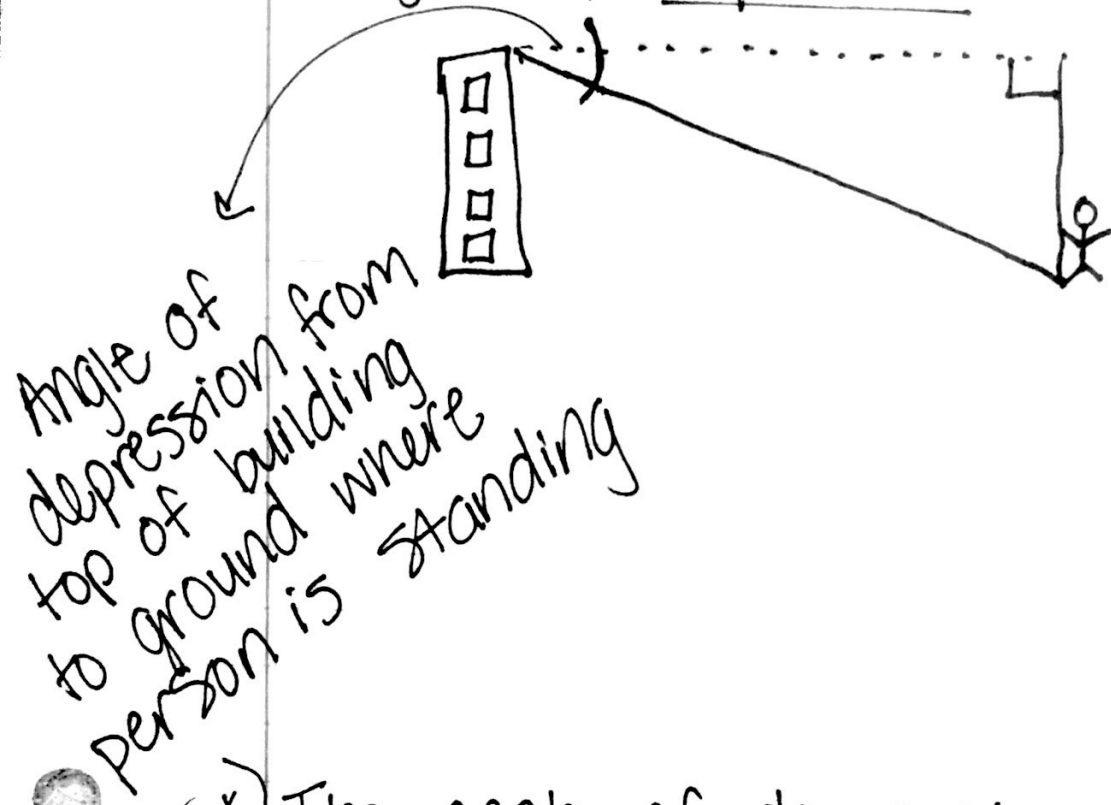 Angle of
depression from
top of building
to ground where
person is standing
The
of